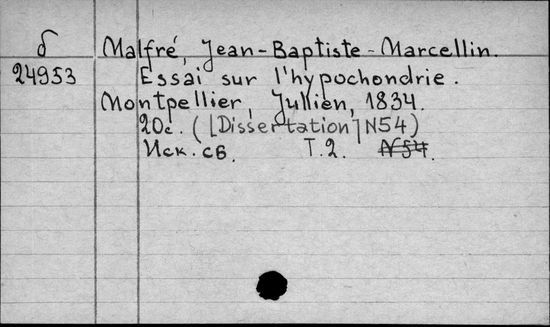 δ Malfré, Jean-Baptiste-Marcellin.
24953 Essai sur l'hypochondrie.
Montpellier, Jullien, 1834.
20c. ([Dissertation] N54)
Иск. св. Т.2. N54.